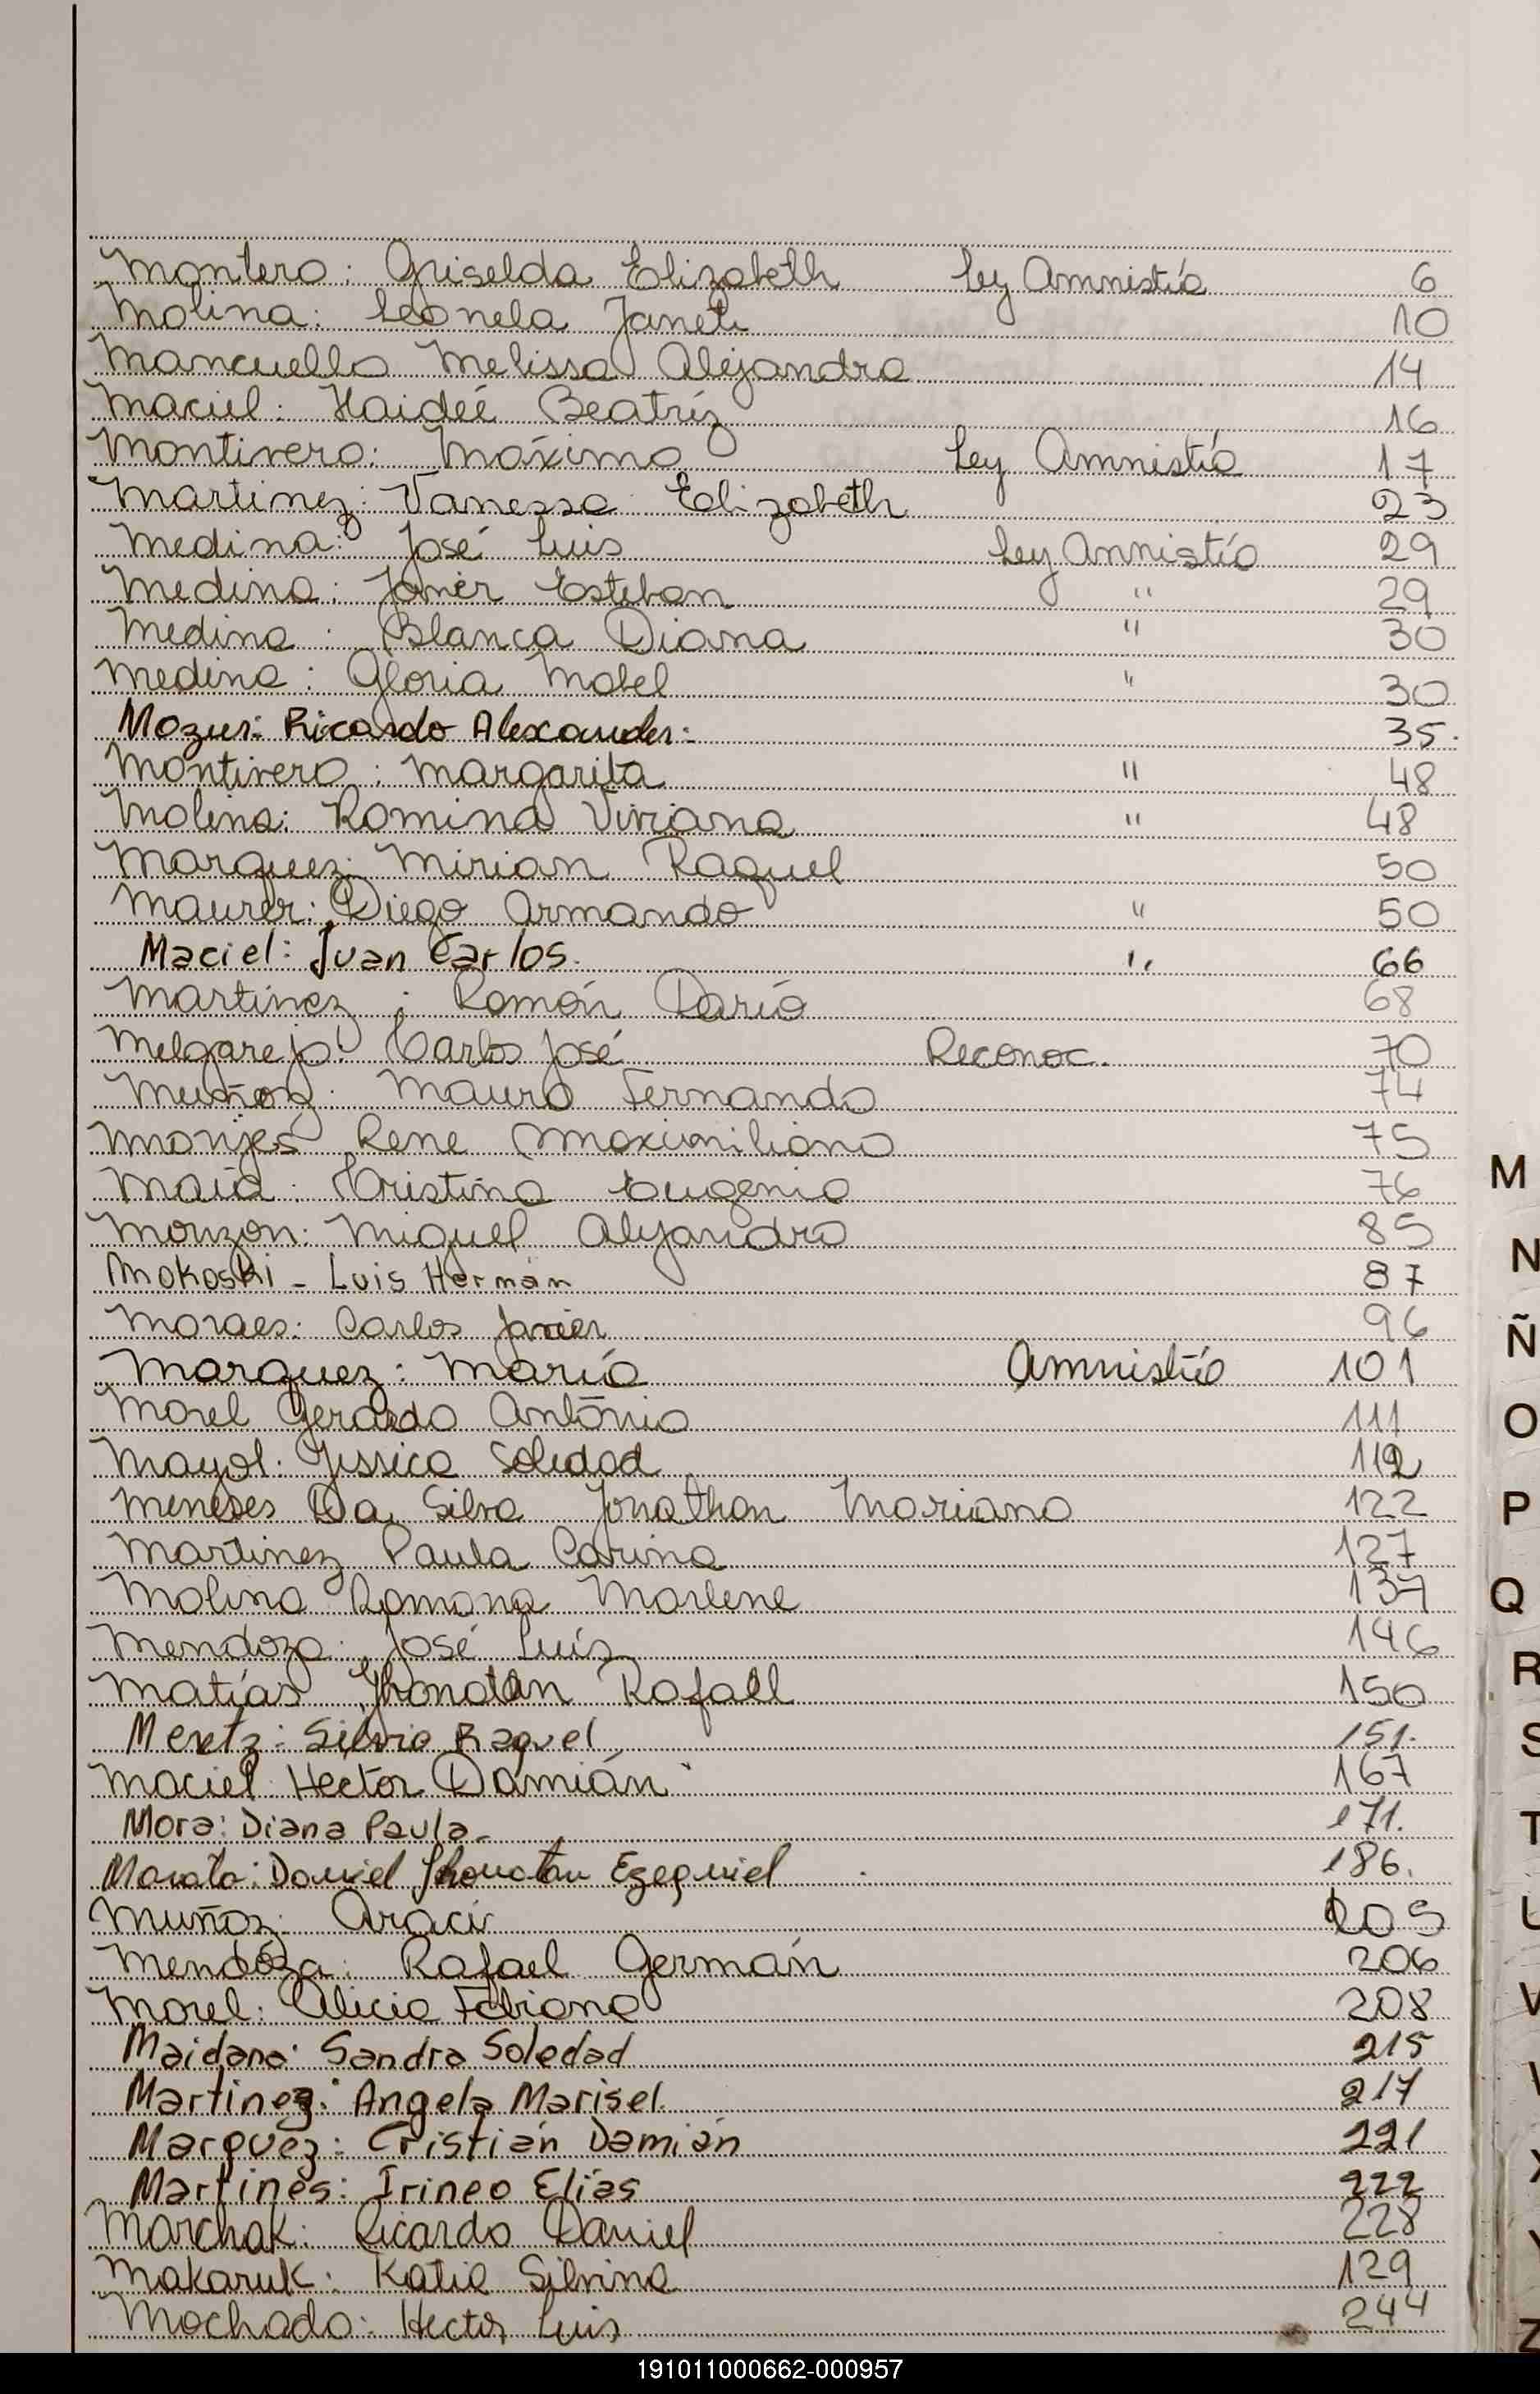 Montero: Griselda Elizabeth Ley Amnistía 6
Molina: Leonela Janeth 10
Mancuello Melissa Alejandra 14
Maciel: Haideé Beatríz 16
Montivero: Máximo Ley Amnistía 17
Martinez: Vanessa Elizabeth 23
Medina: José Luis Ley Amnistía 29
Medina: Javier Esteban " 29
Medina: Blanca Diana " 30
Medina: Gloria Mabel " 30
Mozur: Ricardo Alexander: 35.
Montivero: Margarita " 48
Molina: Romina Viviana " 48
Marquez: Mirian Raquel 50
Maurer: Diego Armando " 50
Maciel: Juan Carlos. " 66
Martínez: Ramón Darío 68
Melgarejo: Carlos José Reconoc. 70
Muñoz: Mauro Fernando 74
Monjes Rene Maximiliano 75
Maia: Cristina Eugenia 76
Monzon: Miguel Alejandro 85
Mokoski - Luis Hernán 87
Moraes: Carlos Javier 96
Marquez: Mario Amnistía 101
Morel Gerardo António 111
Mayol: Jessica Soledad 112
Meneses Da Silva Jonathan Mariano 122
Martinez Paula Carina 127
Molina Romana Marlene 137
Mendoza: José Luís 146
Matías Jhonatan Rafael 150
Mertz: Silvia Raquel 151.
Maciel Hector Damián 167
Mora: Diana Paula- 171.
Daniel Jhonatan Ezequiel 186.
Muñoz: Aracir 205
Mendóza: Rafael Germán 206
Morel: Alicia Fabiana 208
Maidana: Sandra Soledad 215
Martinez: Angela Marisel. 217
Marquez: Cristián Damián 221
Martines: Irineo Elías 222
Marchak: Ricardo Daniel 228
Makaruk: Katia Silvina 129
Machado: Hector Luis 244
M
N
Ñ
O
P
Q
R
S
T
U
V
X
Y
Z
191011000662-000957